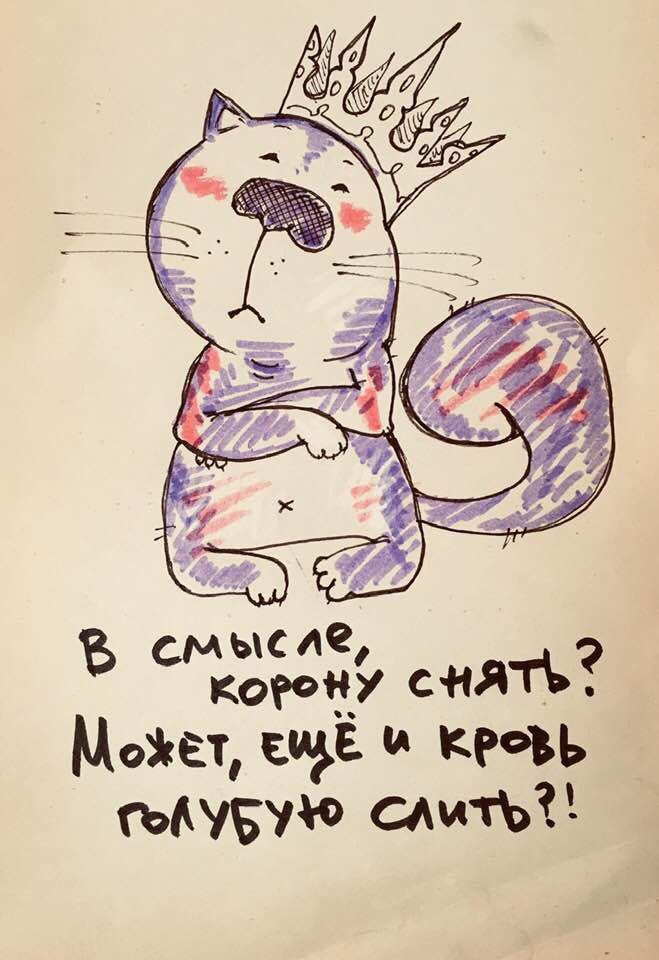 В смысле,
корону снять?
Может, ещё и кровь
голубую слить?!